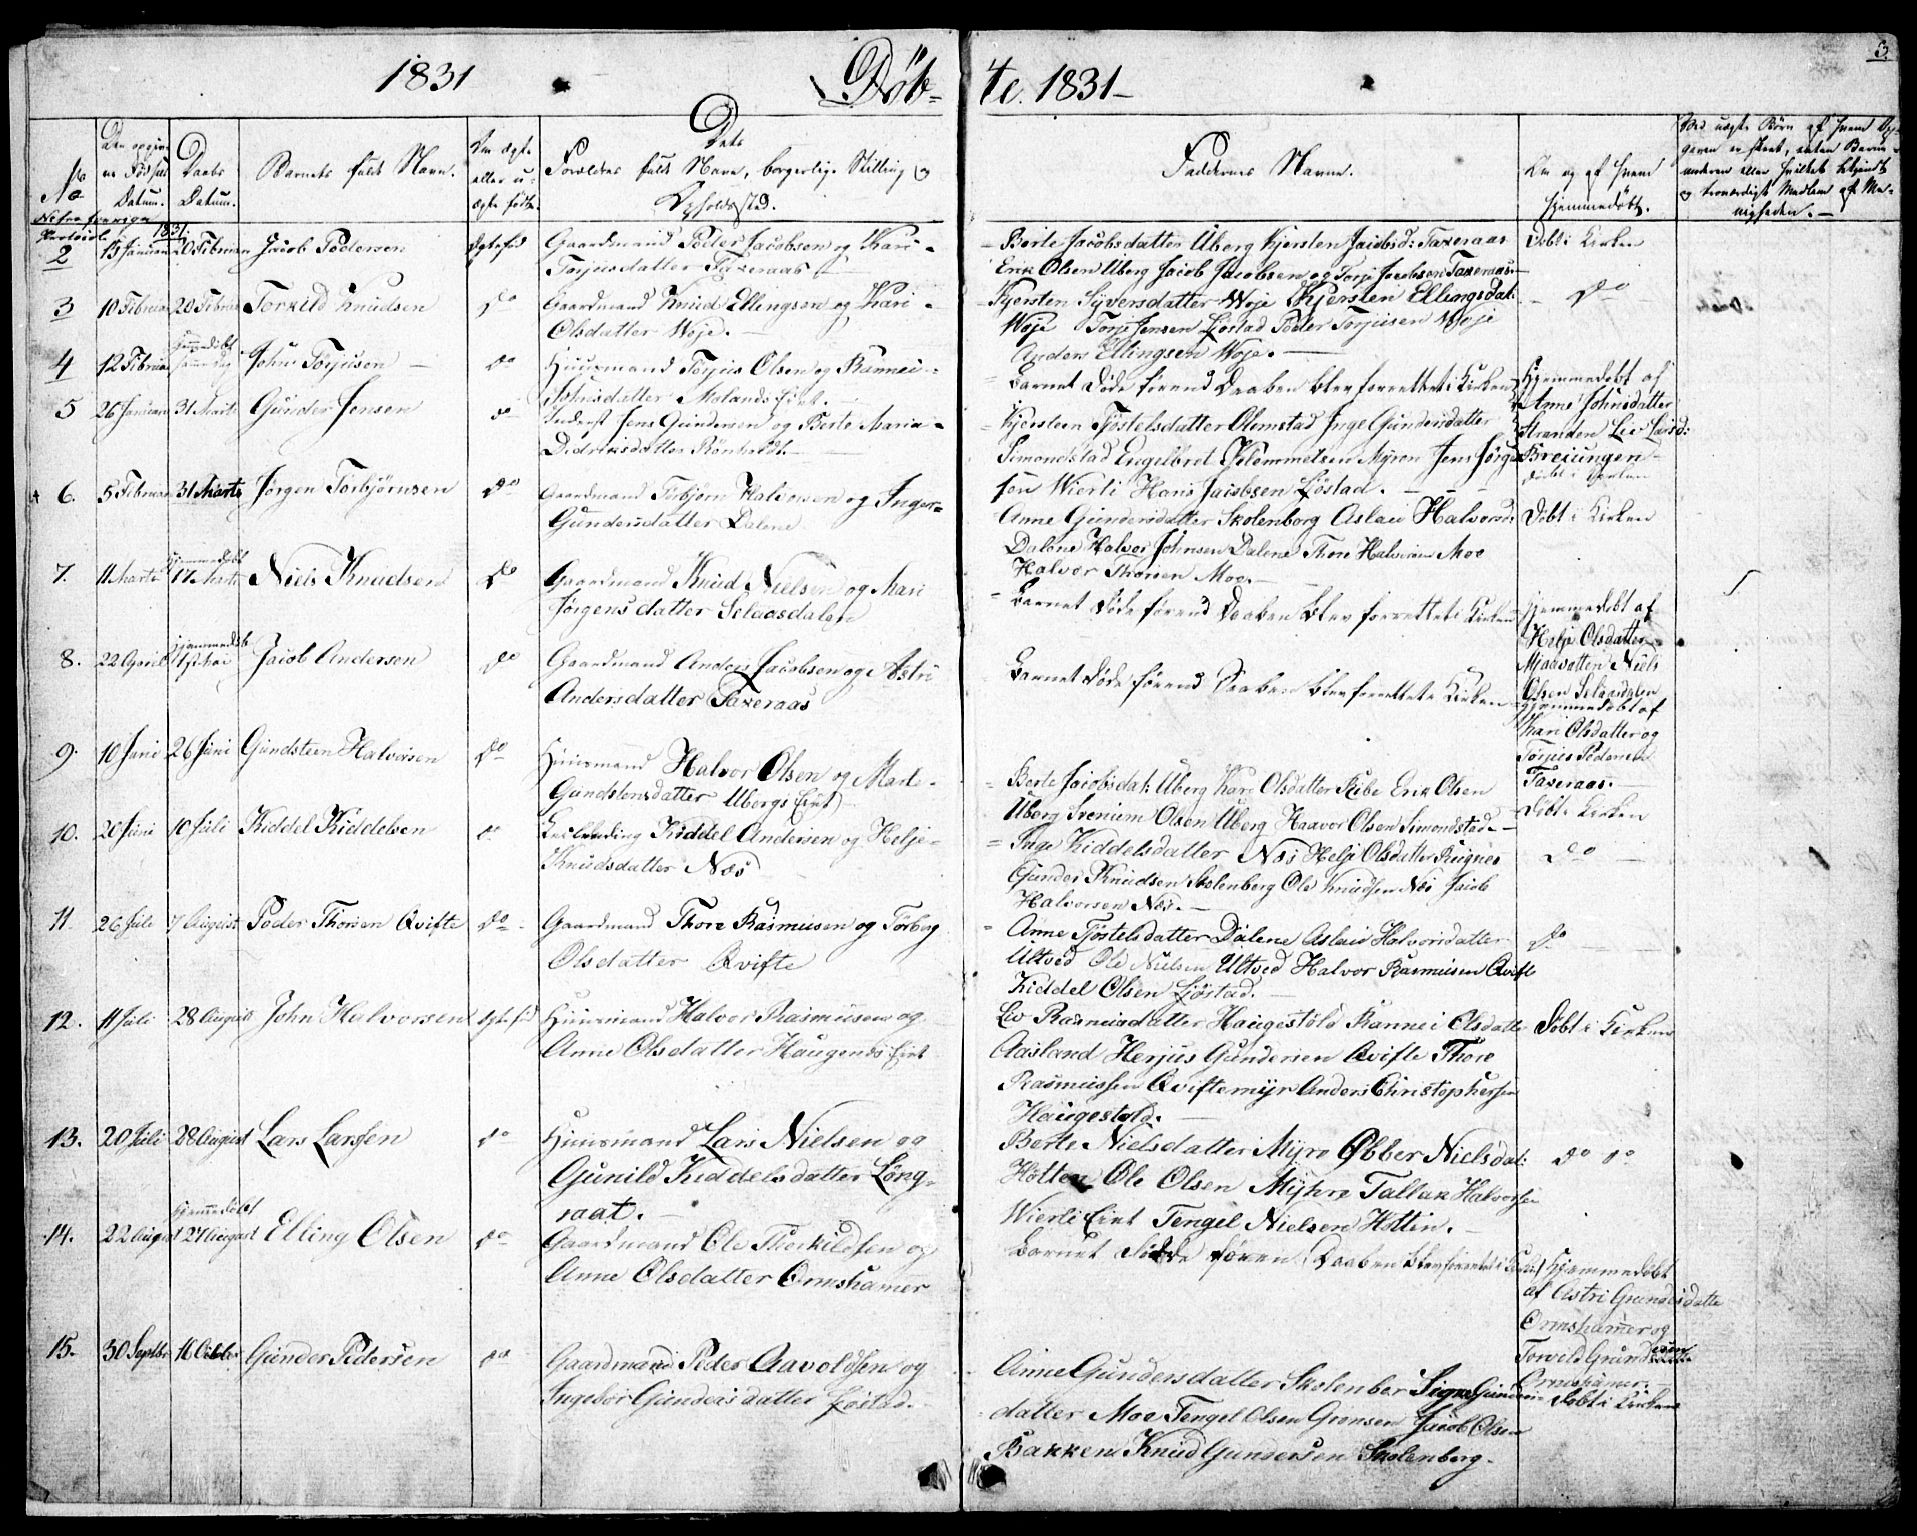 1831
Döb-
Te. 1831-
3.
No
Daabs
Datum.
Barnets fulde Navn.
Dets
Foreldres fulde Navn, borgerlige Stilling og
Opholdssted.
Faddernes Navne.
Hjemmedöbt.
1831
2 13 Januari 20 Februar Jacob Pedersen
Gaardmand Peder Jacobsen og Kari
Torjusdatter Taxeraas
Berte Jacobsdatter Uberg Kjersten Jacobsd: Taxeraas
Erik Olsen Uberg Jacob Jacobsen og Torje Jacobsen Taxeraas
Döbt i Kirken
3 10 Februar 20 Februar Torkild Knudsen Do
Gaardmand Knud Ellingsen og Kari
Olsdatter Woje.
Kjersten Syversdatter Woje Kjersten Ellingsdat:
Woje Torje Jensen Ljöstad Peder Torjusen Woje
Anders Ellingsen Woje.
Do
4 12 Februar hjemmedöbt samme dag John Torjusen Do
Huusmand Torjus Olsen og Rannei
Johnsdatter Molands Eiet.
Barnet Döde förend Daaben blev forrettet i Kirken
Hjemmedöbt af
Anne Johnsdatter
Stranden Liv Larsd:
Breiungen
5 26 Januari 31 Marts Gunder Jensen Do
Inderst Jens Gundersen og Berte Maria
Didriksdatter Rönholdt.
Kjersteen Tjöstelsdatter Olemstad Inge Gundersdatter
Simonstad Engelbret Klemmetsen Myren Jens Jörgen
sen Wierli Hans Jacobsen Ljöstad.
döbt i Kirken
6. 5 Februar 31 Marts Jörgen Torbjörnsen Do
Gaardmand Torbjörn Halvorsen og Inger
Gundersdatter Dalene
Anne Gundersdatter Skolenborg Aslau Halvorsd:
Dalene Halvor Johnsen Dalene Thore Halvorsen Moe
Halvor Thorsen Moe.
Döbt i Kirken
7. 11 Marts hjemmedöbt 17 Marts Niels Knudsen Do
Gaardmand Knud Nielsen og Mari
Jörgensdatter Selaasdalen
Barnet döde förend Daaben blev forrettet i Kirken
Hjemmedöbt af
Helje Olsdatter
Mjaavatten Niels
Olsen Selaasdalen
8. 22 April hjemmedöbt 1ste Mai Jacob Andersen Do
Gaardmand Anders Jacobsen og Astri
Andersdatter Taxeraas
Barnet döde förend Daaben blev forrettet i Kirken
hjemmedöbt af
Kari Olsdatter og
Torjus Pedersen
Taxeraas.
9. 10 Juni 26 Juni Gundsteen Halvorsen Do
Huusmand Halvor Olsen og Marte
Gundstensdatter Ubergs Eiet
Berte Jacobsdat: Uberg Kari Olsdatter Ribe Erik Olsen
Uberg Svenium Olsen Uberg Haavor Olsen Simonstad
Döbt i Kirken
10. 20 Juni 10 Juli Kiddel Kiddelsen Do
Kiddel Andersen og Helje
Knudsdatter Næs
Inge Kiddelsdatter Næs Helje Olsdatter Rugnes
Gunder Knudsen Skolenberg Ole Knudsen Næs Jacob
Halvorsen Næs.
Do
11. 26 Juli 7 August Peder Thorsen Qvifte Do
Gaardmand Thore Rasmusen og Torberg
Olsdatter Qvifte
Anne Tjöstelsdatter Dalene Aslau Halvorsdatter
Ultved Ole Nielsen Ultved Halvor Rasmusen Qvifte
Kiddel Olsen Ljöstad.
Do
12. 11 Juli 28 August John Halvorsen
Huusmand Halvor Rasmusen og
Anne Olsdatter Haugens Eiet
Liv Rasmusdatter Haugestöld Rannei Olsdatter
Aasland Herjus Gundersen Qvifte Thore
Rasmussen Qviftemyr Anders Christophersen
Haugestöld.
Döbt i Kirken
13. 20 Juli 28 August Lars Larssen Do
Huusmand Lars Nielsen og
Gunild Kiddelsdatter Löng-
raat.
Berte Nielsdatter Myre Ebber Nielsdat:
Hotten Ole Olsen Myhre Tallak Halvorsen
Wierli Eiet Tengel Nielsen Hottin.
Do Do
14. 22 August hjemmedöbt 27 August Elling Olsen Do
Gaardmand Ole Thorkildsen og
Anne Olsdatter Ormshammer
Barnet Döde Fören Daaben blev forrettet i Kirken
Hjemmedöbt
af Astri Gundersdatter
Ormshammer og
Torvild
Ormshamer.
15. 30 Septbr 16 Octobr Gunder Pedersen Do
Gaardmand Peder Aavoldsen og
Ingebor Gundersdatter Ljöstad.
Anne Gundersdatter Skolenber Signe Gunders-
datter Moe Tengel Olsen Gronsen Jacob Olsen
Bakken Knud Gundersen Skolenberg.
Döbt i Kirken